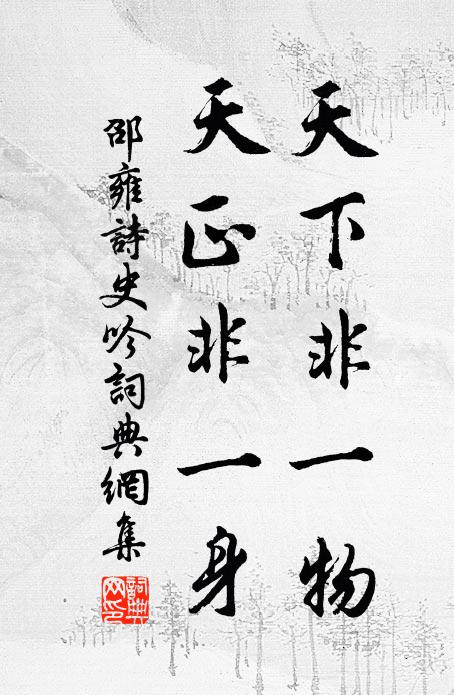 天下非一物
天正非一身
邵雍詩史吟詞典網集
詞典網印